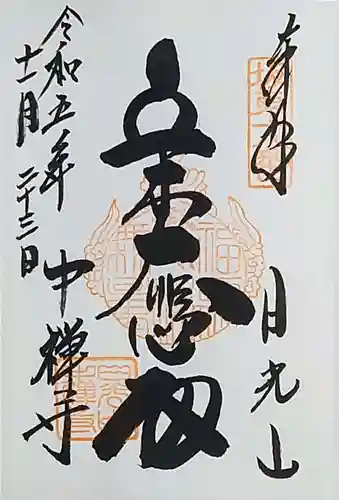 奉拝
日光山
立木大悲殿
中禅寺
令和五年
十一月二十三日